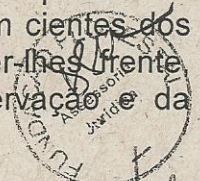 m cientes dos
er-lhes frente
ervação e da
FUNDAÇÃO
Assessoria
Jurídica